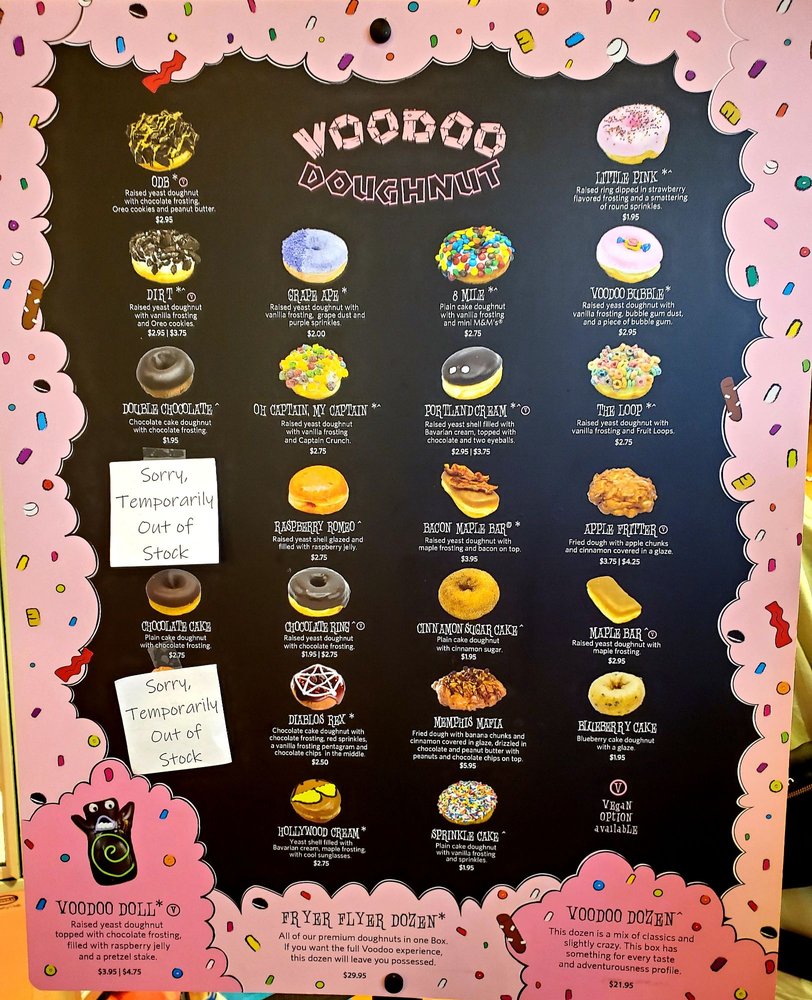 VOODOO
DOUGHNUT
ODB * Ⓥ
Raised yeast doughnut
with chocolate frosting,
Oreo cookies and peanut butter.
$2.95
LITTLE PINK *^
Raised ring dipped in strawberry
flavored frosting and a smattering
of round sprinkles.
$1.95
DIRT *^ Ⓥ
Raised yeast doughnut
with vanilla frosting
and Oreo cookies.
$2.95 | $3.75
GRAPE APE *
Raised yeast doughnut with
vanilla frosting, grape dust and
purple sprinkles.
$2.00
8 MILE *^
Plain cake doughnut
with vanilla frosting
and mini M&M's®
$2.75
VOODOO BUBBLE *
Raised yeast doughnut with
vanilla frosting, bubble gum dust,
and a piece of bubble gum.
$2.95
DOUBLE CHOCOLATE ^
Chocolate cake doughnut
with chocolate frosting.
$1.95
OH CAPTAIN, MY CAPTAIN *^
Raised yeast doughnut
with vanilla frosting
and Captain Crunch.
$2.75
PORTLAND CREAM *^ Ⓥ
Raised yeast shell filled with
Bavarian cream, topped with
chocolate and two eyeballs.
$2.95 | $3.75
THE LOOP *^
Raised yeast doughnut with
vanilla frosting and Fruit Loops.
$2.75
Sorry,
Temporarily
Out of
Stock
RASPBERRY ROMEO ^
Raised yeast shell glazed and
filled with raspberry jelly.
$2.75
BACON MAPLE BAR® *
Raised yeast doughnut with
maple frosting and bacon on top.
$3.95
APPLE FRITTER Ⓥ
Fried dough with apple chunks
and cinnamon covered in a glaze.
$3.75 | $4.25
CHOCOLATE CAKE
Plain cake doughnut
with chocolate frosting.
$2.75
CHOCOLATE RING ^ Ⓥ
Raised yeast doughnut
with chocolate frosting.
$1.95 | $2.75
CINNAMON SUGAR CAKE ^
Plain cake doughnut
with cinnamon sugar.
$1.95
MAPLE BAR ^ Ⓥ
Raised yeast doughnut with
maple frosting.
$2.95
Sorry,
Temporarily
Out of
Stock
DIABLOS REX *
Chocolate cake doughnut with
chocolate frosting, red sprinkles,
a vanilla frosting pentagram and
chocolate chips in the middle.
$2.50
MEMPHIS MAFIA
Fried dough with banana chunks and
cinnamon covered in glaze, drizzled in
chocolate and peanut butter with
peanuts and chocolate chips on top.
$5.95
BLUEBERRY CAKE
Blueberry cake doughnut
with a glaze.
$1.95
HOLLYWOOD CREAM *
Yeast shell filled with
Bavarian cream, maple frosting,
with cool sunglasses.
$2.75
SPRINKLE CAKE ^
Plain cake doughnut
with vanilla frosting
and sprinkles.
$1.95
Ⓥ
VEGAN
OPTION
AVAILABLE
VOODOO DOLL* Ⓥ
Raised yeast doughnut
topped with chocolate frosting,
filled with raspberry jelly
and a pretzel stake.
$3.95 | $4.75
FRYER FLYER DOZEN*
All of our premium doughnuts in one Box.
If you want the full Voodoo experience,
this dozen will leave you possessed.
$29.95
VOODOO DOZEN^
This dozen is a mix of classics and
slightly crazy. This box has
something for every taste
and adventurousness profile.
$21.95